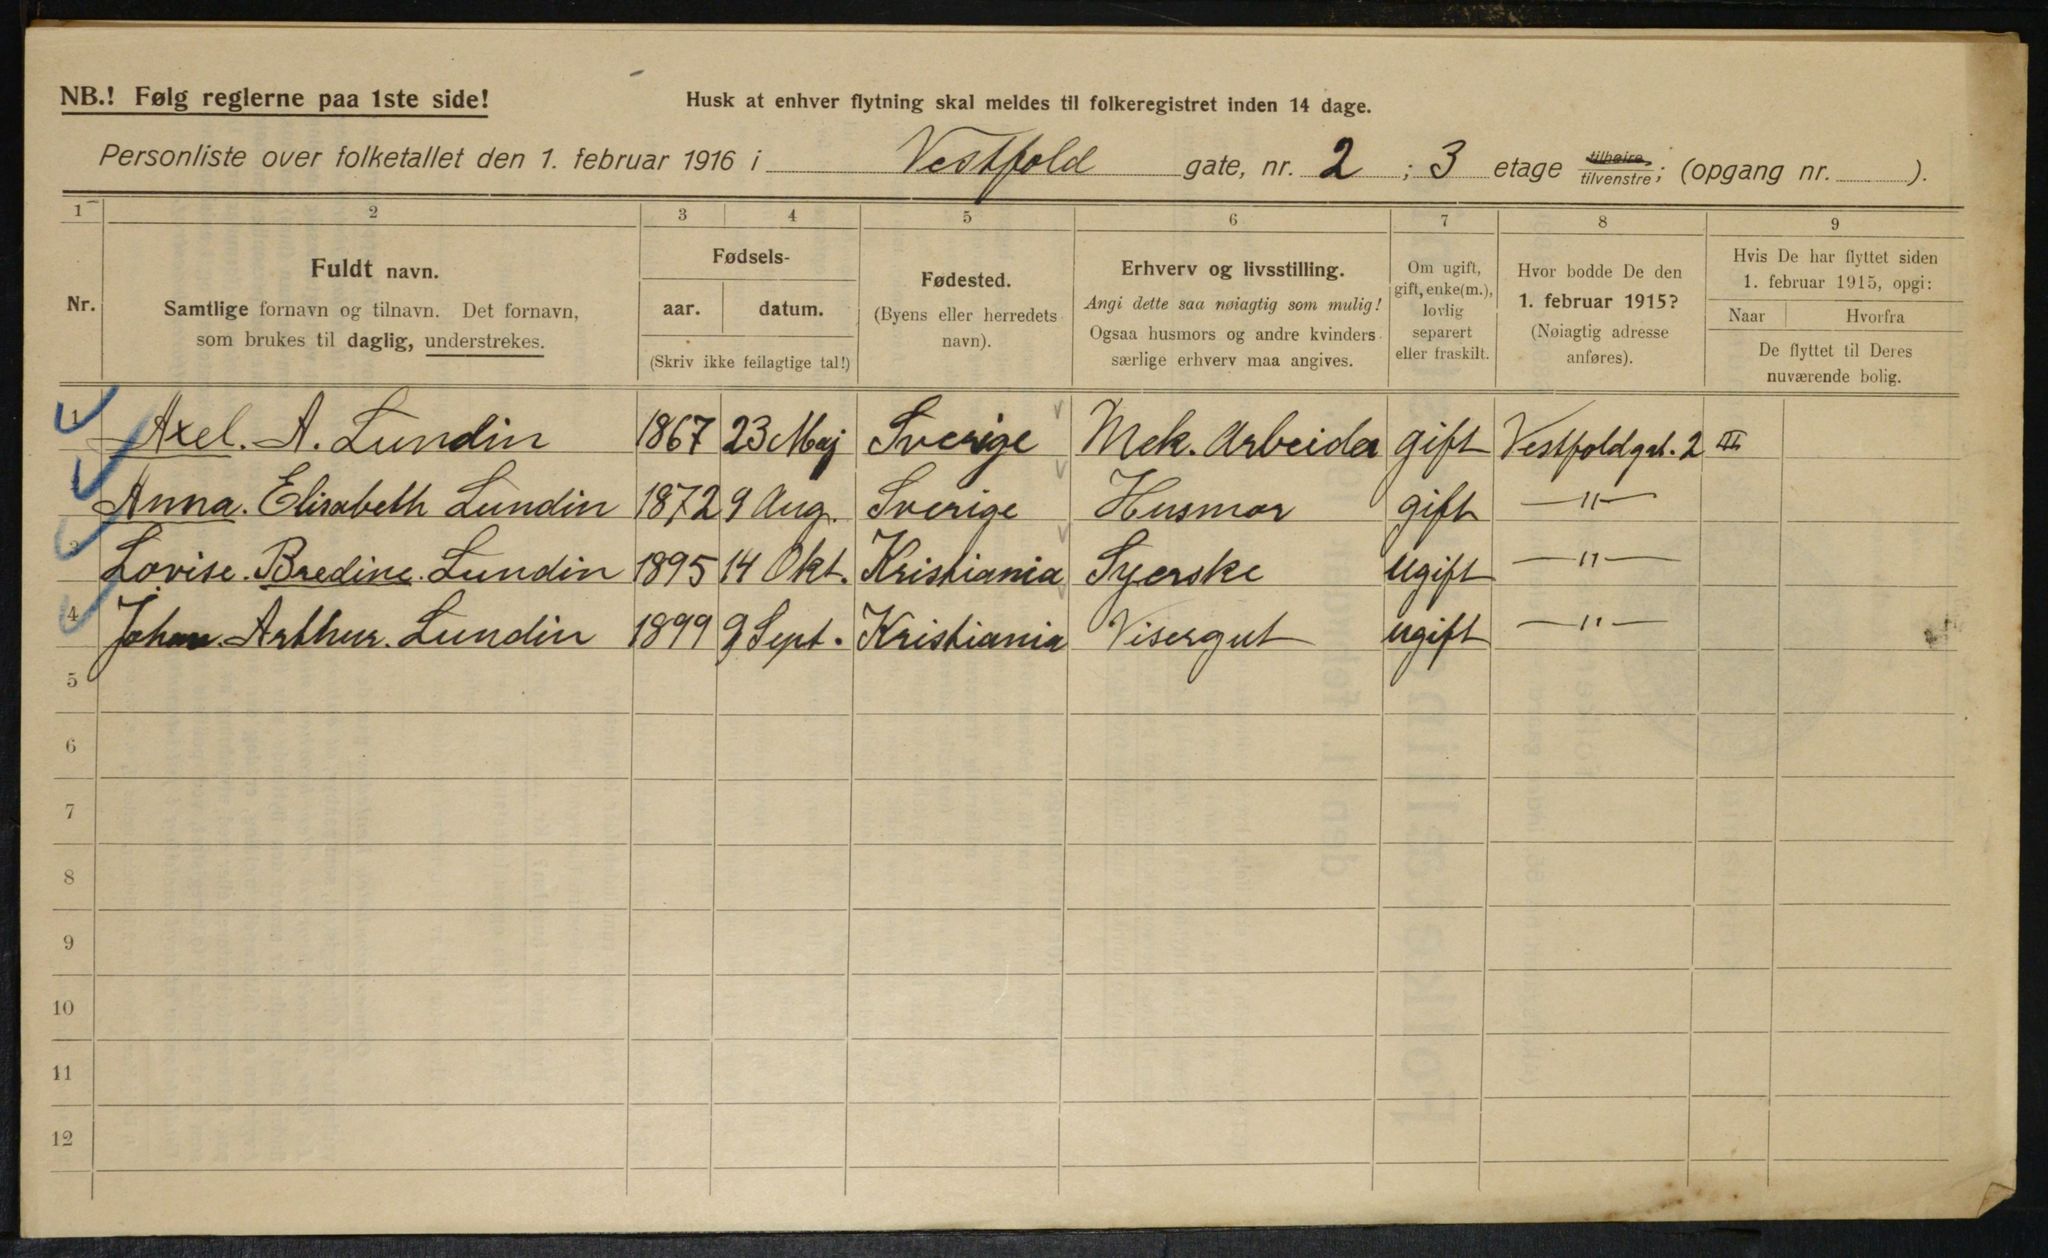 NB.! Følg reglerne paa 1ste side!
Husk at enhver flytning skal meldes til folkeregistret inden 14 dage.
Personliste over folketallet den 1. februar 1916 i Vestfold gate, nr. 2 ; 3 etage tilhøire tilvenstre; (opgang nr. ).
1 2 3 4 5 6 7 8 9
Nr.
Fuldt navn.
Samtlige fornavn og tilnavn. Det fornavn,
som brukes til daglig, understrekes.
Fødsels-
aar. datum.
(Skriv ikke feilagtige tal!)
Fødested.
(Byens eller herredets
navn).
Erhverv og livsstilling.
Angi dette saa nøiagtig som mulig!
Ogsaa husmors og andre kvinders
særlige erhverv maa angives.
Om ugift,
gift, enke(m.),
lovlig
separert
eller fraskilt.
Hvor bodde De den
1. februar 1915?
(Nøiagtig adresse
anføres).
Hvis De har flyttet siden
1. februar 1915, opgi:
Naar Hvorfra
De flyttet til Deres
nuværende bolig.
1 Axel. A. Lundin 1867 23 Maj Sverige Mek. Arbeider gift Vestfoldgat. 2 III
Anna. Elisabeth Lundin 1872 9 Aug. Sverige Husmor gift —"—
3 Lovise. Bredine. Lundin 1895 14 Okt. Kristiania Syerske ugift —"—
4 Johan. Arthur. Lundin 1899 9 Sept. Kristiania Visergut ugift —"—
5
6
7
8
9
10
11
12